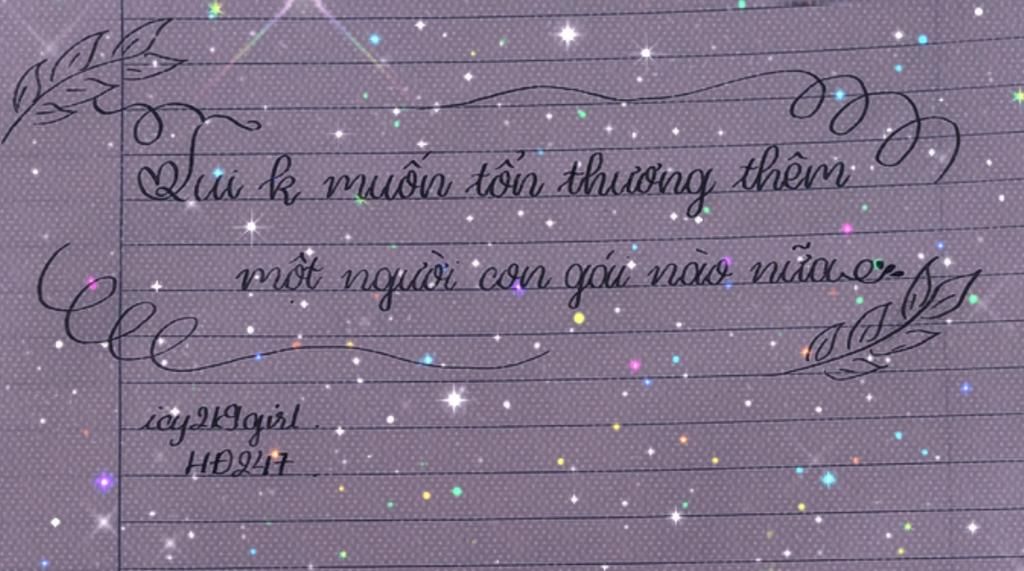 Qui k muốn tổn thương thêm
một người con gái nào nữa
icy2k9girl.
HĐ247.